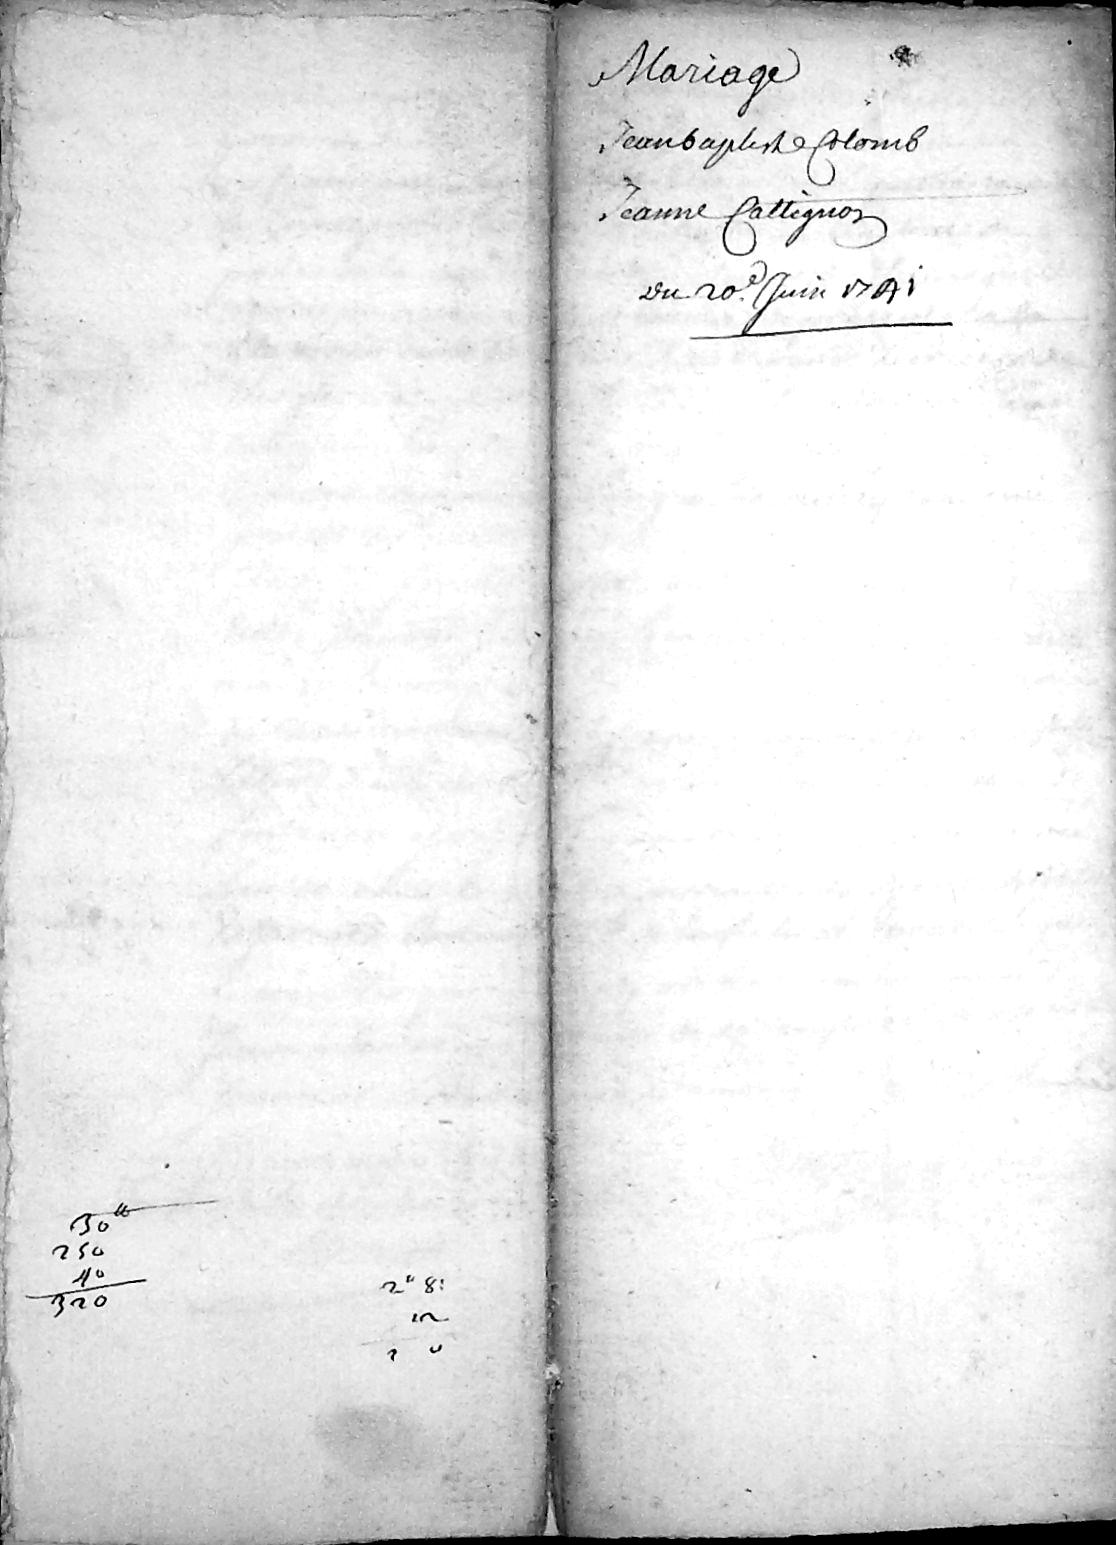 Mariage
Jeanbaptiste Colomb
Jeanne Cattignon
Du 20.e Juin 1741
30 ₶
250
40
320
2 ₶ 8 s
12